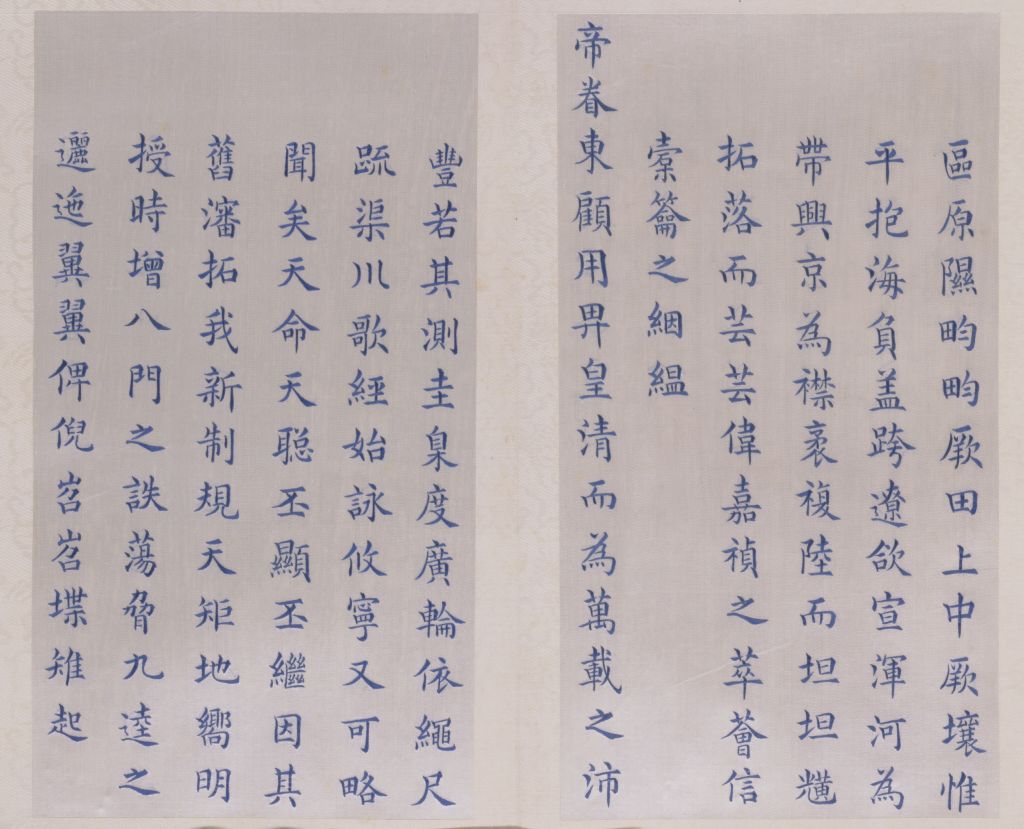 區原隰畇畇厥田上中厥壤惟
平抱海負盖跨遼欱宣渾河為
帶興京為襟袤複陸而坦坦爌
拓落而芸芸偉嘉禎之萃薈信
橐籥之絪緼
帝眷東顧用畀皇清而為萬載之沛
豐若其測圭臬度廣輪依繩尺
疏渠川歌經始詠攸寧又可略
聞矣天命天聰丕顯丕繼因其
舊瀋拓我新制規天矩地嚮明
授時增八門之詄蕩脅九逵之
邐迆翼翼俾倪岧岧堞雉起